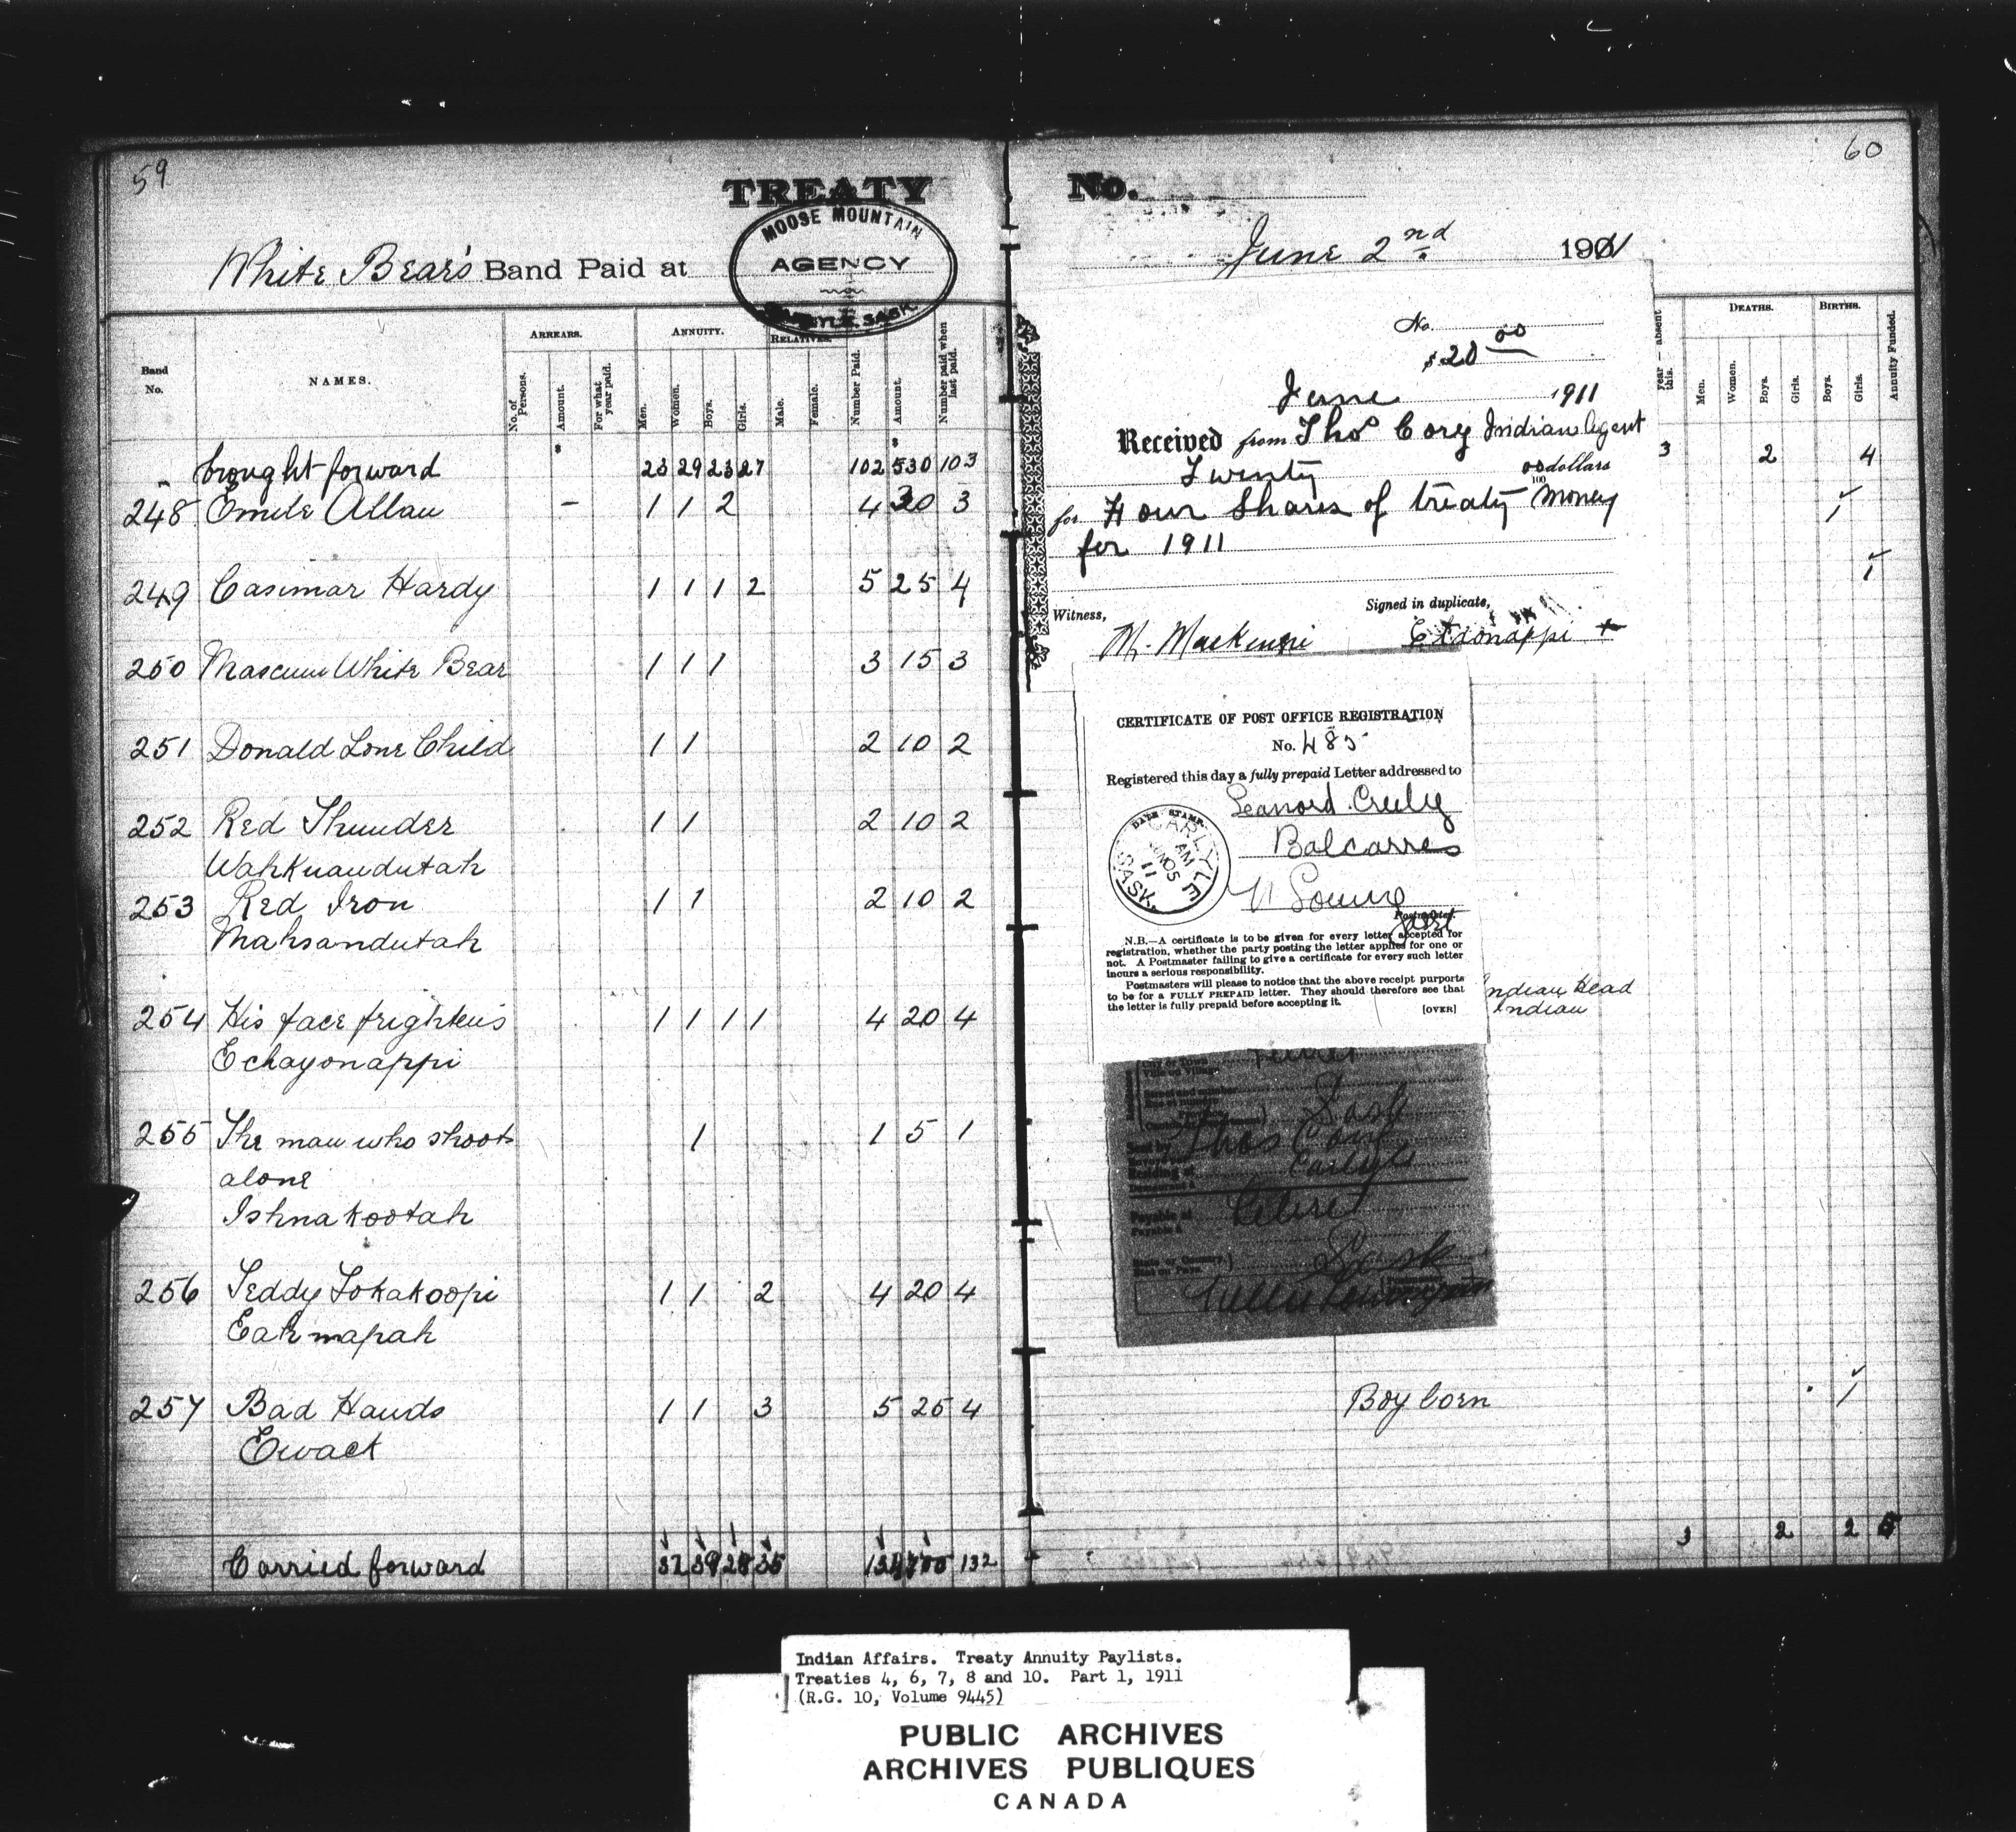 59
TREATY
MOOSE MOUNTAIN
AGENCY
SASK.
White Bear's Band Paid at
Band No.
NAMES.
ARREARS.
No. of Persons.
Amount.
For what year paid.
ANNUITY.
Men.
Women.
Boys.
Girls.
RELATIVES.
Male.
Female.
Number Paid.
Amount.
Number paid when last paid.
brought forward 23 29 23 27 102 530 103
248 Emile Allan – 1 1 2 4 20 3
249 Casimar Hardy 1 1 1 2 5 25 4
250 White Bear 1 1 1 3 15 3
251 Donald Lone Child 1 1 2 10 2
252 Red Thunder 1 1 2 10 2
Wahkuandutah
253 Red Iron 1 1 2 10 2
Mahsandutah
254 His face frightens 1 1 1 1 4 20 4
Echayonappi
255 The man who shoots 1 1 5 1
alone
Ishnakootah
256 Teddy Lokakoopi 1 1 2 4 20 4
Eahmapah
257 Bad Hands 1 1 3 5 25 4
Ewack
Carried forward 132
60
No.
June 2nd 1911
No.
$20 00
June 1911
Received from Thos Cory Indian Agent
Twenty 00/100 dollars
for Four Shares of treaty money
for 1911
Witness,
Signed in duplicate,
M. Mackenzie
+
CERTIFICATE OF POST OFFICE REGISTRATION
No. 485
Registered this day a fully prepaid Letter addressed to
Balcarres
DATE STAMP.
CARLYLE
AM
JUN 05
11
SASK.
Postmaster.
N.B.—A certificate is to be given for every letter accepted for
registration, whether the party posting the letter applies for one or
not. A Postmaster failing to give a certificate for every such letter
incurs a serious responsibility.
Postmasters will please to notice that the above receipt purports
to be for a FULLY PREPAID letter. They should therefore see that
the letter is fully prepaid before accepting it.
[OVER]
Indian Head
Indian
City or Town
Sask
Thos Cory
Carlyle
Payable at
Payable à
Sask
year—absent this.
DEATHS.
Men.
Women.
Boys.
Girls.
BIRTHS.
Boys.
Girls.
Annuity Funded.
3 2 4
1
1
Boy born 1
3 2 2
Indian Affairs. Treaty Annuity Paylists.
Treaties 4, 6, 7, 8 and 10. Part 1, 1911
(R.G. 10, Volume 9445)
PUBLIC ARCHIVES
ARCHIVES PUBLIQUES
CANADA